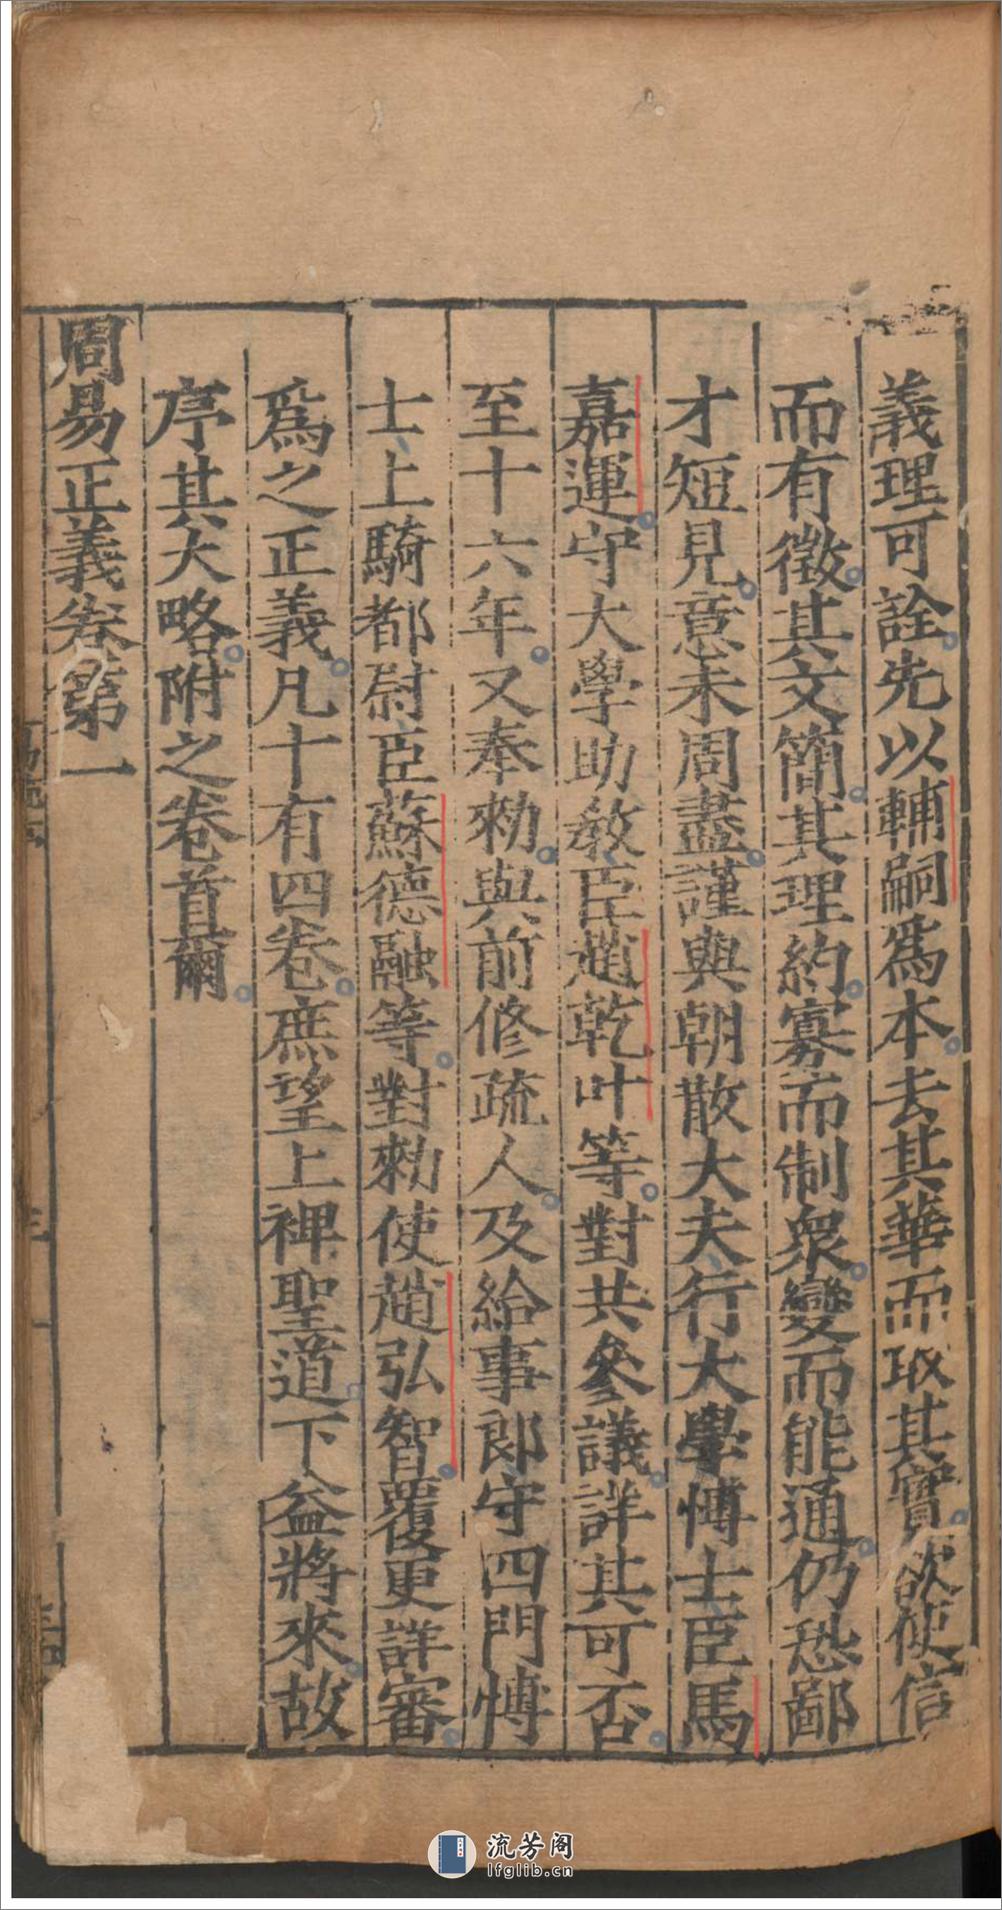 義理可詮先以輔嗣爲本去其華而取其實欲使信
而有徵其文簡其理約寡而制衆變而能通仍恐鄙
才短見意未周盡謹與朝散大夫行大學博士臣馬
嘉運守大學助教臣趙乾叶等對共參議詳其可否
至十六年又奉勑與前修疏人及給事郎守四門博
士上騎都尉臣蘇德融等對勑使趙弘智覆更詳審
爲之正義凡十有四卷庶望上裨聖道下益將來故
序其大略附之卷首爾
周易正義卷第一
流芳阁
lfglib.cn